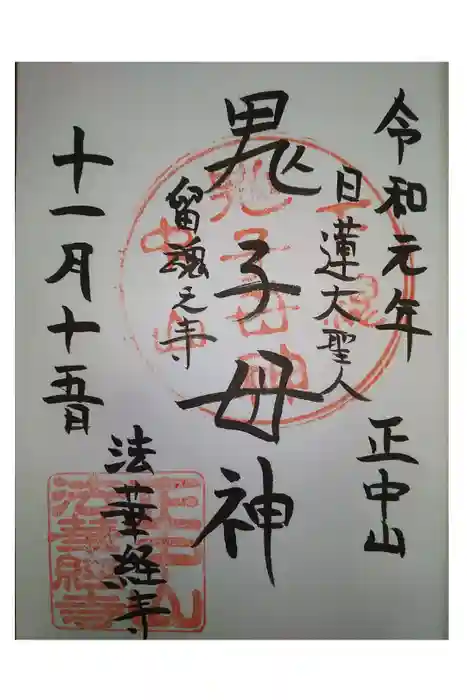 令和元年 正中山
日蓮大聖人
鬼子母神
留魂之寺
法華経寺
十一月十五日
正中山
法華経寺